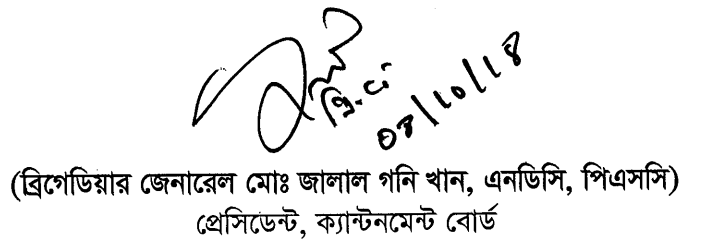 08/10/18
(ব্রিগেডিয়ার জেনারেল মোঃ জালাল গনি খান, এনডিসি, পিএসসি)
প্রেসিডেন্ট, ক্যান্টনমেন্ট বোর্ড